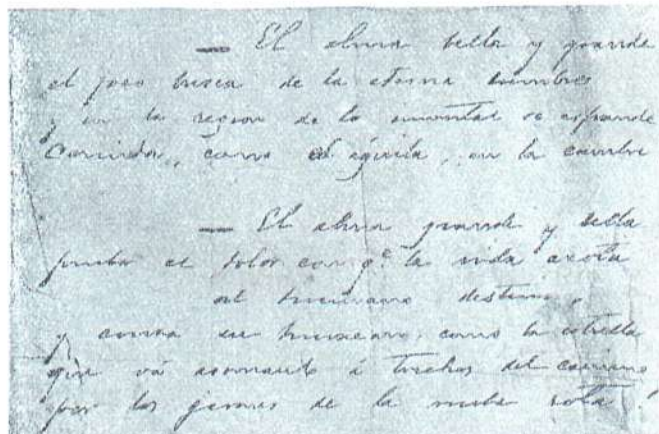 — El alma bella y grande
el foco busca de la eterna lumbre
y en la region de lo inmortal se espande
como el águila, en la cumbre
— El alma grande y bella
el dolor con qe. la vida azota
al humano destino,
y como la estrella
que vá asomando á trechos del camino
por los girones de la nube rota!